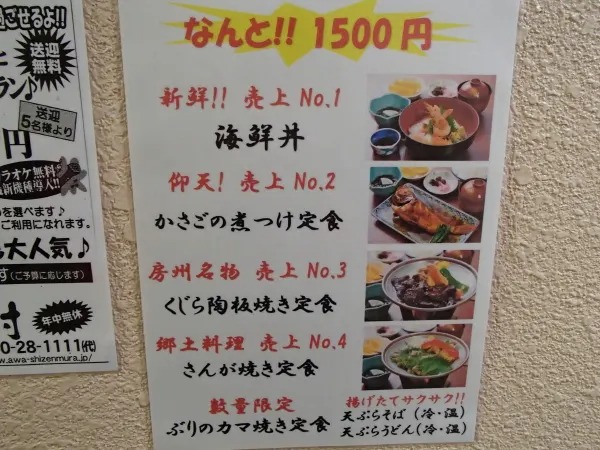 過ごせるよ!!
送迎
無料
ラン♪
送迎
5名様より
円
ラオケ無料
新機種導入!!
を選べます♪
ご利用になれます。
大人気♪
す(ご予算に応じます)
村
年中無休
0-28-1111(代)
w.awa-shizenmura.jp/
なんと!! 1500円
新鮮!! 売上No.1
海鮮丼
仰天! 売上No.2
かさごの煮つけ定食
房州名物 売上No.3
くじら陶板焼き定食
郷土料理 売上No.4
さんが焼き定食
数量限定
ぶりのカマ焼き定食
揚げたてサクサク!!
天ぷらそば(冷・温)
天ぷらうどん(冷・温)